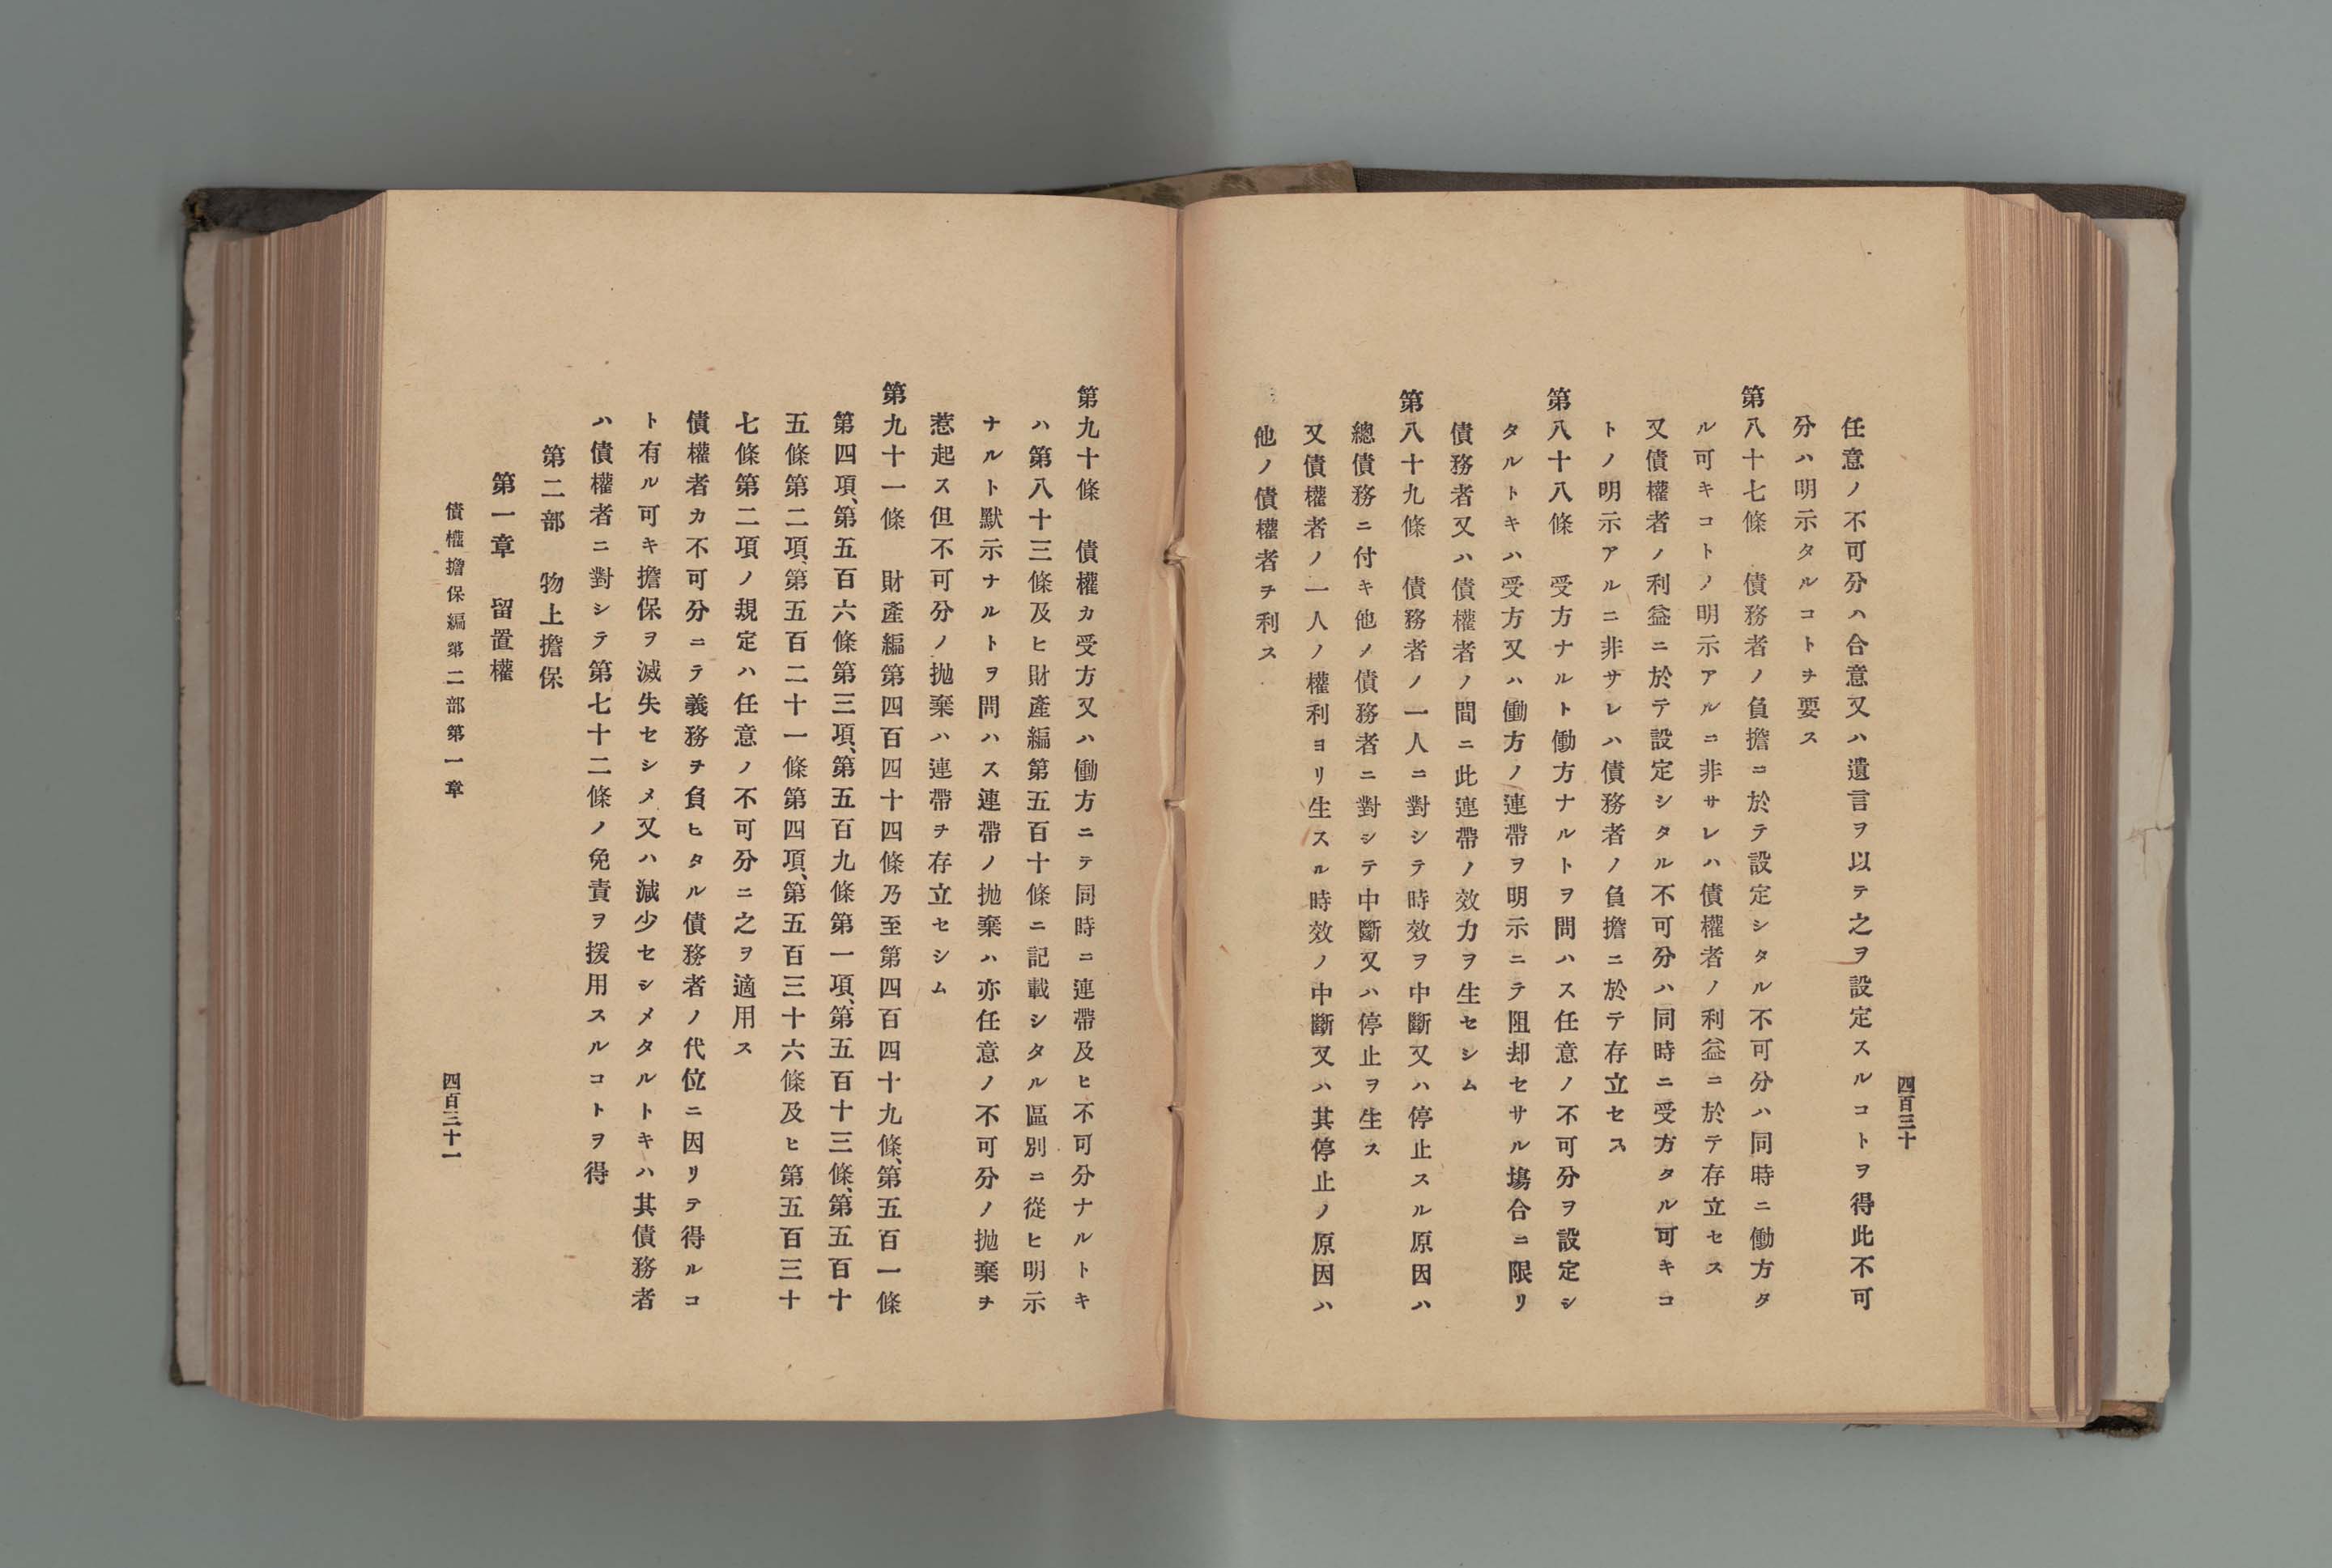 四百三十
任意ノ不可分ハ合意又ハ遺言ヲ以テ之ヲ設定スルコトヲ得此不可
分ハ明示タルコトヲ要ス
第八十七條　債務者ノ負擔ニ於テ設定シタル不可分ハ同時ニ働方タ
ル可キコトノ明示アルニ非サレハ債權者ノ利益ニ於テ存立セス
又債權者ノ利益ニ於テ設定シタル不可分ハ同時ニ受方タル可キコ
トノ明示アルニ非サレハ債務者ノ負擔ニ於テ存立セス
第八十八條　受方ナルト働方ナルトヲ問ハス任意ノ不可分ヲ設定シ
タルトキハ受方又ハ働方ノ連帶ヲ明示ニテ阻却セサル塲合ニ限リ
債務者又ハ債權者ノ間ニ此連帶ノ效力ヲ生セシム
第八十九條　債務者ノ一人ニ對シテ時效ヲ中斷又ハ停止スル原因ハ
總債務ニ付キ他ノ債務者ニ對シテ中斷又ハ停止ヲ生ス
又債權者ノ一人ノ權利ヨリ生スル時效ノ中斷又ハ其停止ノ原因ハ
他ノ債權者ヲ利ス
第九十條　債權カ受方又ハ働方ニテ同時ニ連帶及ヒ不可分ナルトキ
ハ第八十三條及ヒ財產編第五百十條ニ記載シタル區別ニ從ヒ明示
ナルト默示ナルトヲ問ハス連帶ノ抛棄ハ亦任意ノ不可分ノ抛棄ヲ
惹起ス但不可分ノ抛棄ハ連帶ヲ存立セシム
第九十一條　財產編第四百四十四條乃至第四百四十九條、第五百一條
第四項、第五百六條第三項、第五百九條第一項、第五百十三條、第五百十
五條第二項、第五百二十一條第四項、第五百三十六條及ヒ第五百三十
七條第二項ノ規定ハ任意ノ不可分ニ之ヲ適用ス
債權者カ不可分ニテ義務ヲ負ヒタル債務者ノ代位ニ因リテ得ルコ
ト有ル可キ擔保ヲ滅失セシメ又ハ減少セシメタルトキハ其債務者
ハ債權者ニ對シテ第七十二條ノ免責ヲ援用スルコトヲ得
第二部　物上擔保
第一章　留置權
債權擔保編第二部第一章
四百三十一